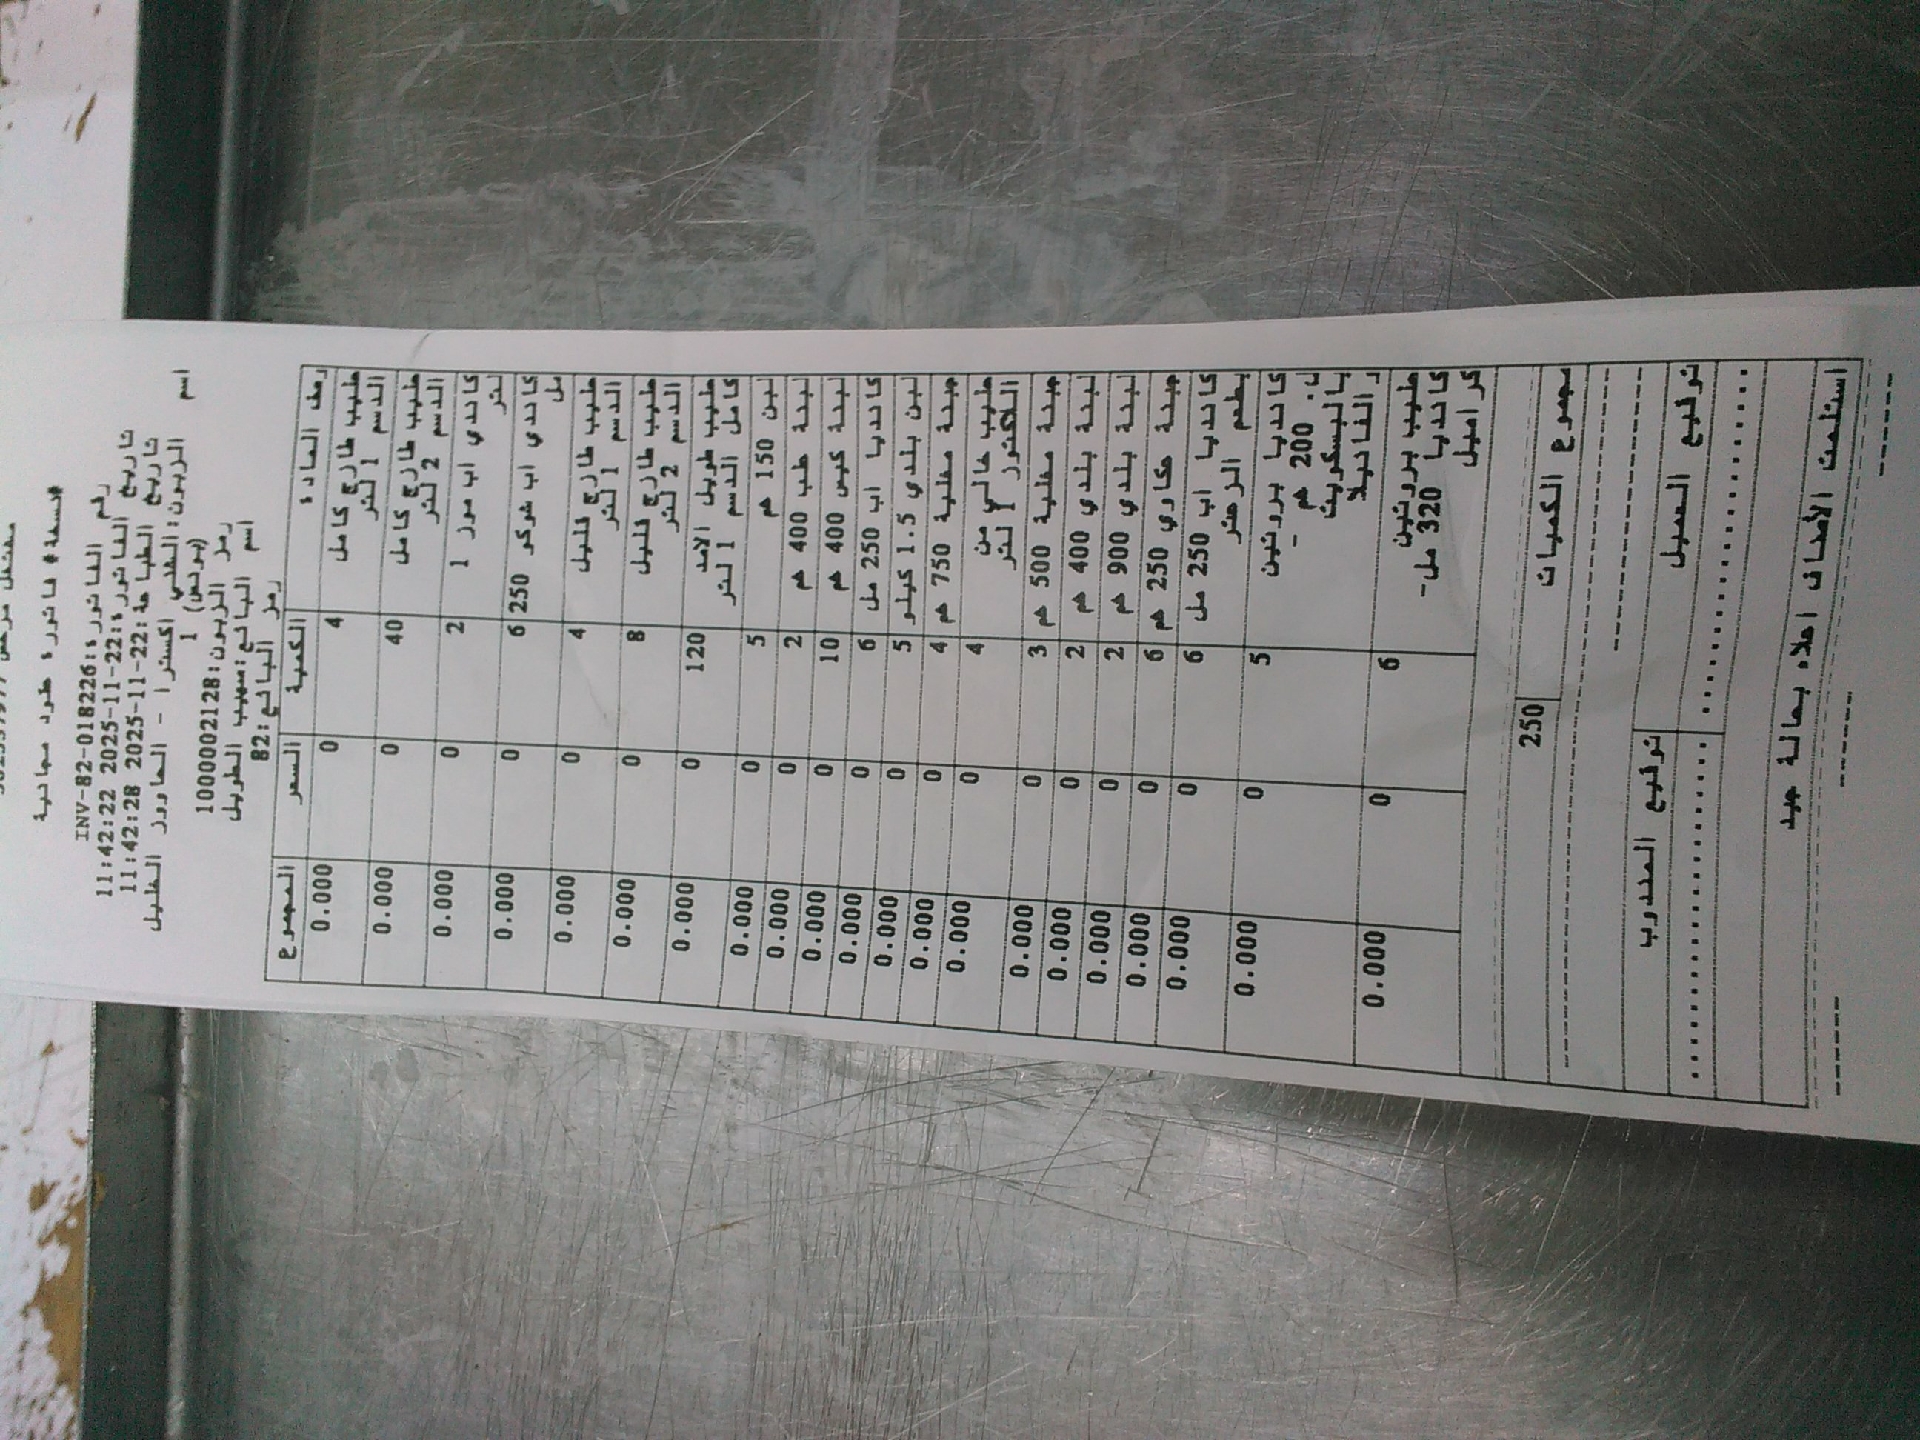 *نسخة* فاتورة طرود مجانية
رقم الفاتورة:INV-82-0182226
تاريخ الفاتورة:22-11-2025 11:42:22
تاريخ الطباعة:22-11-2025 11:42:28
اسم الزبون: اكسترا - الماوور الخليل
(بونص) 1
رمز الزبون:1000002128
اسم البائع:سهيب الطويل
رمز البائع:82
وصف المادة الكمية السعر المجموع
حليب طازج كامل 4 0 0.000
الدسم 1 لتر
حليب طازج كامل 40 0 0.000
الدسم 2 لتر
كاندي اب موز 1 2 0 0.000
لتر
كاندي اب شوكو 250 6 0 0.000
مل
حليب طازج قليل 4 0 0.000
الدسم 1 لتر
حليب طازج قليل 8 0 0.000
الدسم 2 لتر
حليب طويل الامد 120 0 0.000
كامل الدسم 1 لتر
لبن 150 غم 5 0 0.000
لبنة علب 400 غم 2 0 0.000
لبنة كيس 400 غم 10 0 0.000
كانديا اب 250 مل 6 0 0.000
لبن بلدي 1.5 كيلو 5 0 0.000
جبنة مغلية 750 غم 4 0 0.000
حليب خالي من 4 0 0.000
اللاكتوز 1 لتر
جبنة مغلية 500 غم 3 0 0.000
لبنة بلدي 400 غم 2 0 0.000
لبنة بلدي 900 غم 2 0 0.000
جبنة عكاوي 250 غم 6 0 0.000
كانديا اب 250 مل 6 0 0.000
بطعم الزعتر
كانديا بروتين 5 0 0.000
ب. 200 غم -
بالبسكويت
و الفانيلا
حليب بروتين 6 0 0.000
كانديا 320 مل-
كراميل
مجموع الكميات 250
توقيع العميل توقيع المندوب
استلمت الأصناف اعلاه بحالة جيد